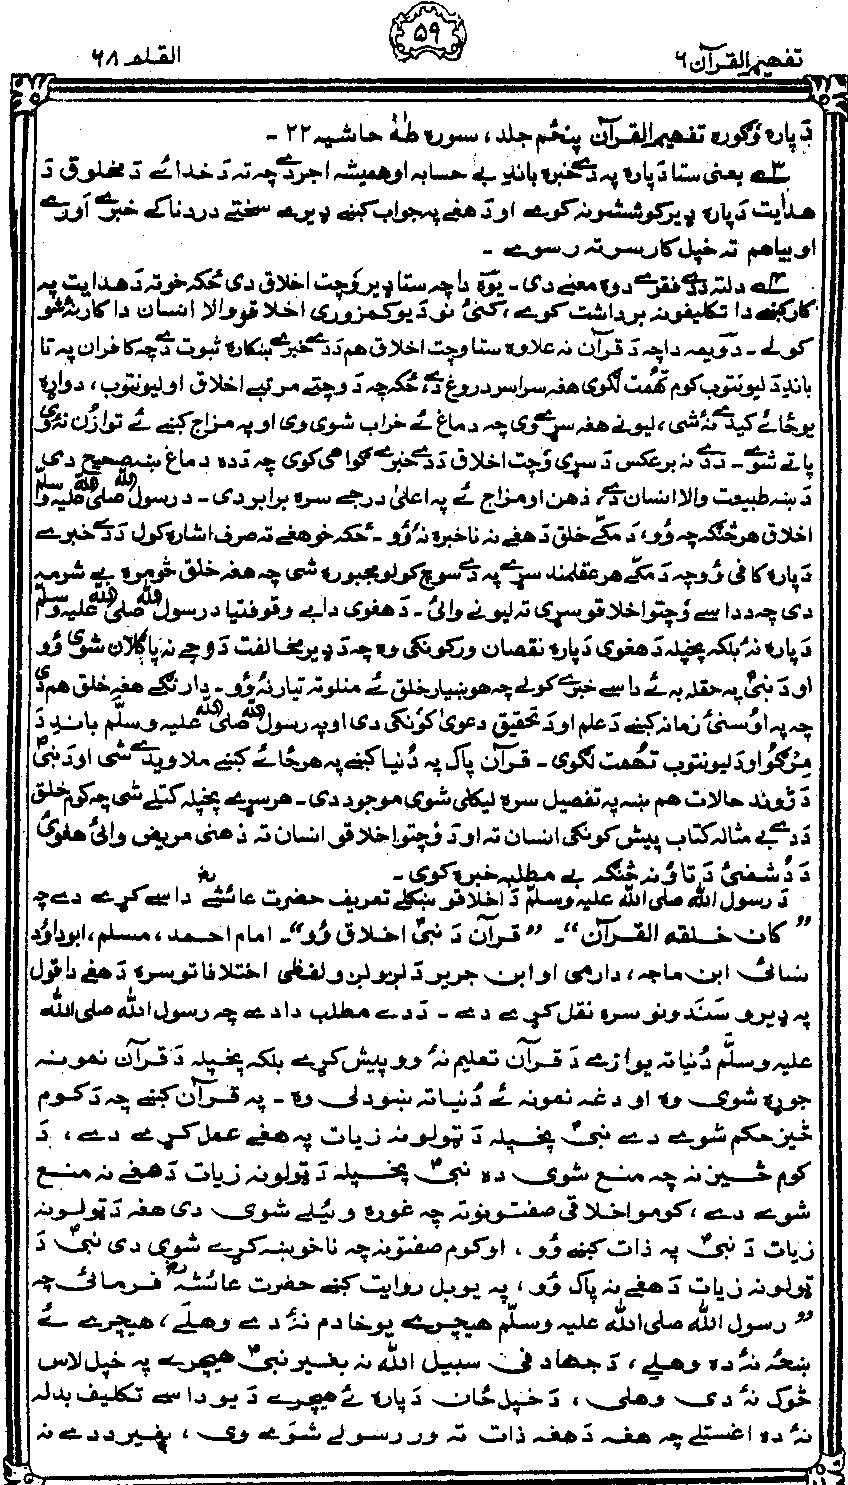 تفهیم القرآن ۶
۵۹
القلم ۶۸
دَ پاره وَګوره تفهیم القرآن پنځم جلد، سوره طٰهٰ حاشیه ۲۲ -
۳ یعنی ستا دَپاره په دے خبره باندے بے حسابه او همیشه اجر دے چه ته دَ خدائے دَ مخلوق دَ
هدایت دَپاره ډیر کوششونه کوے او دَ هغے په جواب کښے ډیرے سختے دردناکے خبرے آورے
او بیا هم ته خپل کار سرته رسوے -
۴ دلته دَدے فقرے دوه معنے دی - یوه دا چه ستا ډیر وَچت اخلاق دی ځکه خو ته دَ هدایت په
کار کښے دا تکلیفونه برداشت کوے، کنی نو د یو کمزوری اخلاقو والا انسان دا کار نشو
کولے - دویمه دا چه دَ قرآن نه علاوه ستا وچت اخلاق هم دَدے خبرے ښکاره ثبوت دے چه کافران په تا
باندِ دَ لیونتوب کوم تهُمت لګوی هغه سراسر دروغ دے، ځکه چه دَ وچتے مرتبے اخلاق او لیونتوب، دواړه
یو ځائے کیدے نهٔ شی، لیونے هغه سړے وی چه دماغ ئے خراب شوی وی او په مزاج کښے ئے توازُن نهٔ وی
پاتے شوے - دَدے نه برعکس دَ سړی وَچت اخلاق دَدے خبرے ګواهی کوی چه دَده دماغ ښه صحیح دی
دَ ښه طبیعت والا انسان دے، ذهن او مزاج ئے په اعلیٰ درجے سره برابر دی - د رسول الله صلی الله علیه وسلم
اخلاق هر څنګه چه وُو، دَ مکے خلق دَ هغے نه ناخبره نهٔ وُو - ځکه خو هغے ته صرف اشاره کول دَدے خبرے
دَپاره کافی وُو چه دَ مکے هر عقلمند سړے په دے سوچ کولو مجبوره شی چه هغه خلق څومره بے شرمه
دی چه د دا سے وَچتو اخلاقو سړی ته لیونے وائی - دَ هغوی دا بے وقوفتیا د رسول الله صلی الله علیه وسلم
دَپاره نهٔ بلکه پخپله دَ هغوی دَپاره نقصان ورکونکی وه چه دَ ډیر مخالفت دَ وجے نه پاګلان شوی وُو
او دَ نبیؐ په حقله به ئے دا سے خبرے کولے چه هوښیار خلق ئے منلو ته تیار نهٔ وُو - دارنګے هغه خلق هم دی
چه په اوُسنی زمانه کښے دَ علم او دَ تحقیق دعویٰ کوُنکی دی او په رسول الله صلی الله علیه وسلّم باندِ دَ
میرګو او دَ لیونتوب تهُمت لګوی - قرآن پاک په دُنیا کښے په هر ځائے کښے ملاویدے شی او دَ نبیؐ
دَ ژوند حالات هم ښه په تفصیل سره لیکلی شوی موجود دی - هر سړے پخپله کتلے شی چه کوم خلق
دَدے بے مثاله کتاب پیش کونکی انسان ته او دَ وُچتو اخلاقو انسان ته ذهنی مریض وائی هغوی
دَ دُشمنئ دَ تاؤ نه څنګه بے مطلبه خبره کوی -
دَ رسول الله صلی الله علیه وسلم دَ اخلاقو ښکلے تعریف حضرت عائشےؓ داسے کړے دے چه
”کان خلقه القرآن“- ”قرآن دَ نبیؐ اخلاق وُو“- امام احمد، مسلم، ابوداوُد
نسائی ابن ماجه، دارمی او ابن جریر دَ لږو لږو لفظی اختلافاتو سره دَ هغے دا قول
په ډیرو سَندونو سره نقل کړے دے - دَدے مطلب دا دے چه رسول الله صلی الله
علیه وسلّم دُنیا ته یوازے دَ قرآن تعلیم نهٔ وو پیش کړے بلکه پخپله دَ قرآن نمونه
جوړه شوی وه او دغه نمونه ئے دُنیا ته ښودلی وه - په قرآن کښے چه دَ کوم
څیز حکم شوے دے نبیؐ پخپله دَ ټولو نه زیات په هغے عمل کړے دے، دَ
کوم څیز نه چه منع شوی ده نبیؐ پخپله دَ ټولو نه زیات دَ هغے نه منع
شوے دے، کومو اخلاقی صفتونو ته چه غوره وئیلے شوی دی هغه دَ ټولو نه
زیات دَ نبیؐ په ذات کښے وُو، او کوم صفتونه چه ناخوښه کړے شوی دی نبیؐ دَ
ټولو نه زیات دَ هغے نه پاک وُو، په یو بل روایت کښے حضرت عائشهؓ فرمائی چه
”رسول الله صلی الله علیه وسلّم هیچرے یو خادم نهٔ دے وهلے، هیچرے ئے
ښځه نهٔ ده وهلے، دَ جهاد فی سبیل الله نه بغیر نبیؐ هیچرے په خپل لاس
څوک نهٔ دی وهلی، دَ خپل ځان دَپاره ئے هیچرے دَ یو داسے تکلیف بدله
نهٔ ده اغستلے چه هغه دَ هغه ذات ته ور رسولے شوے وی، بغیر ددے نه